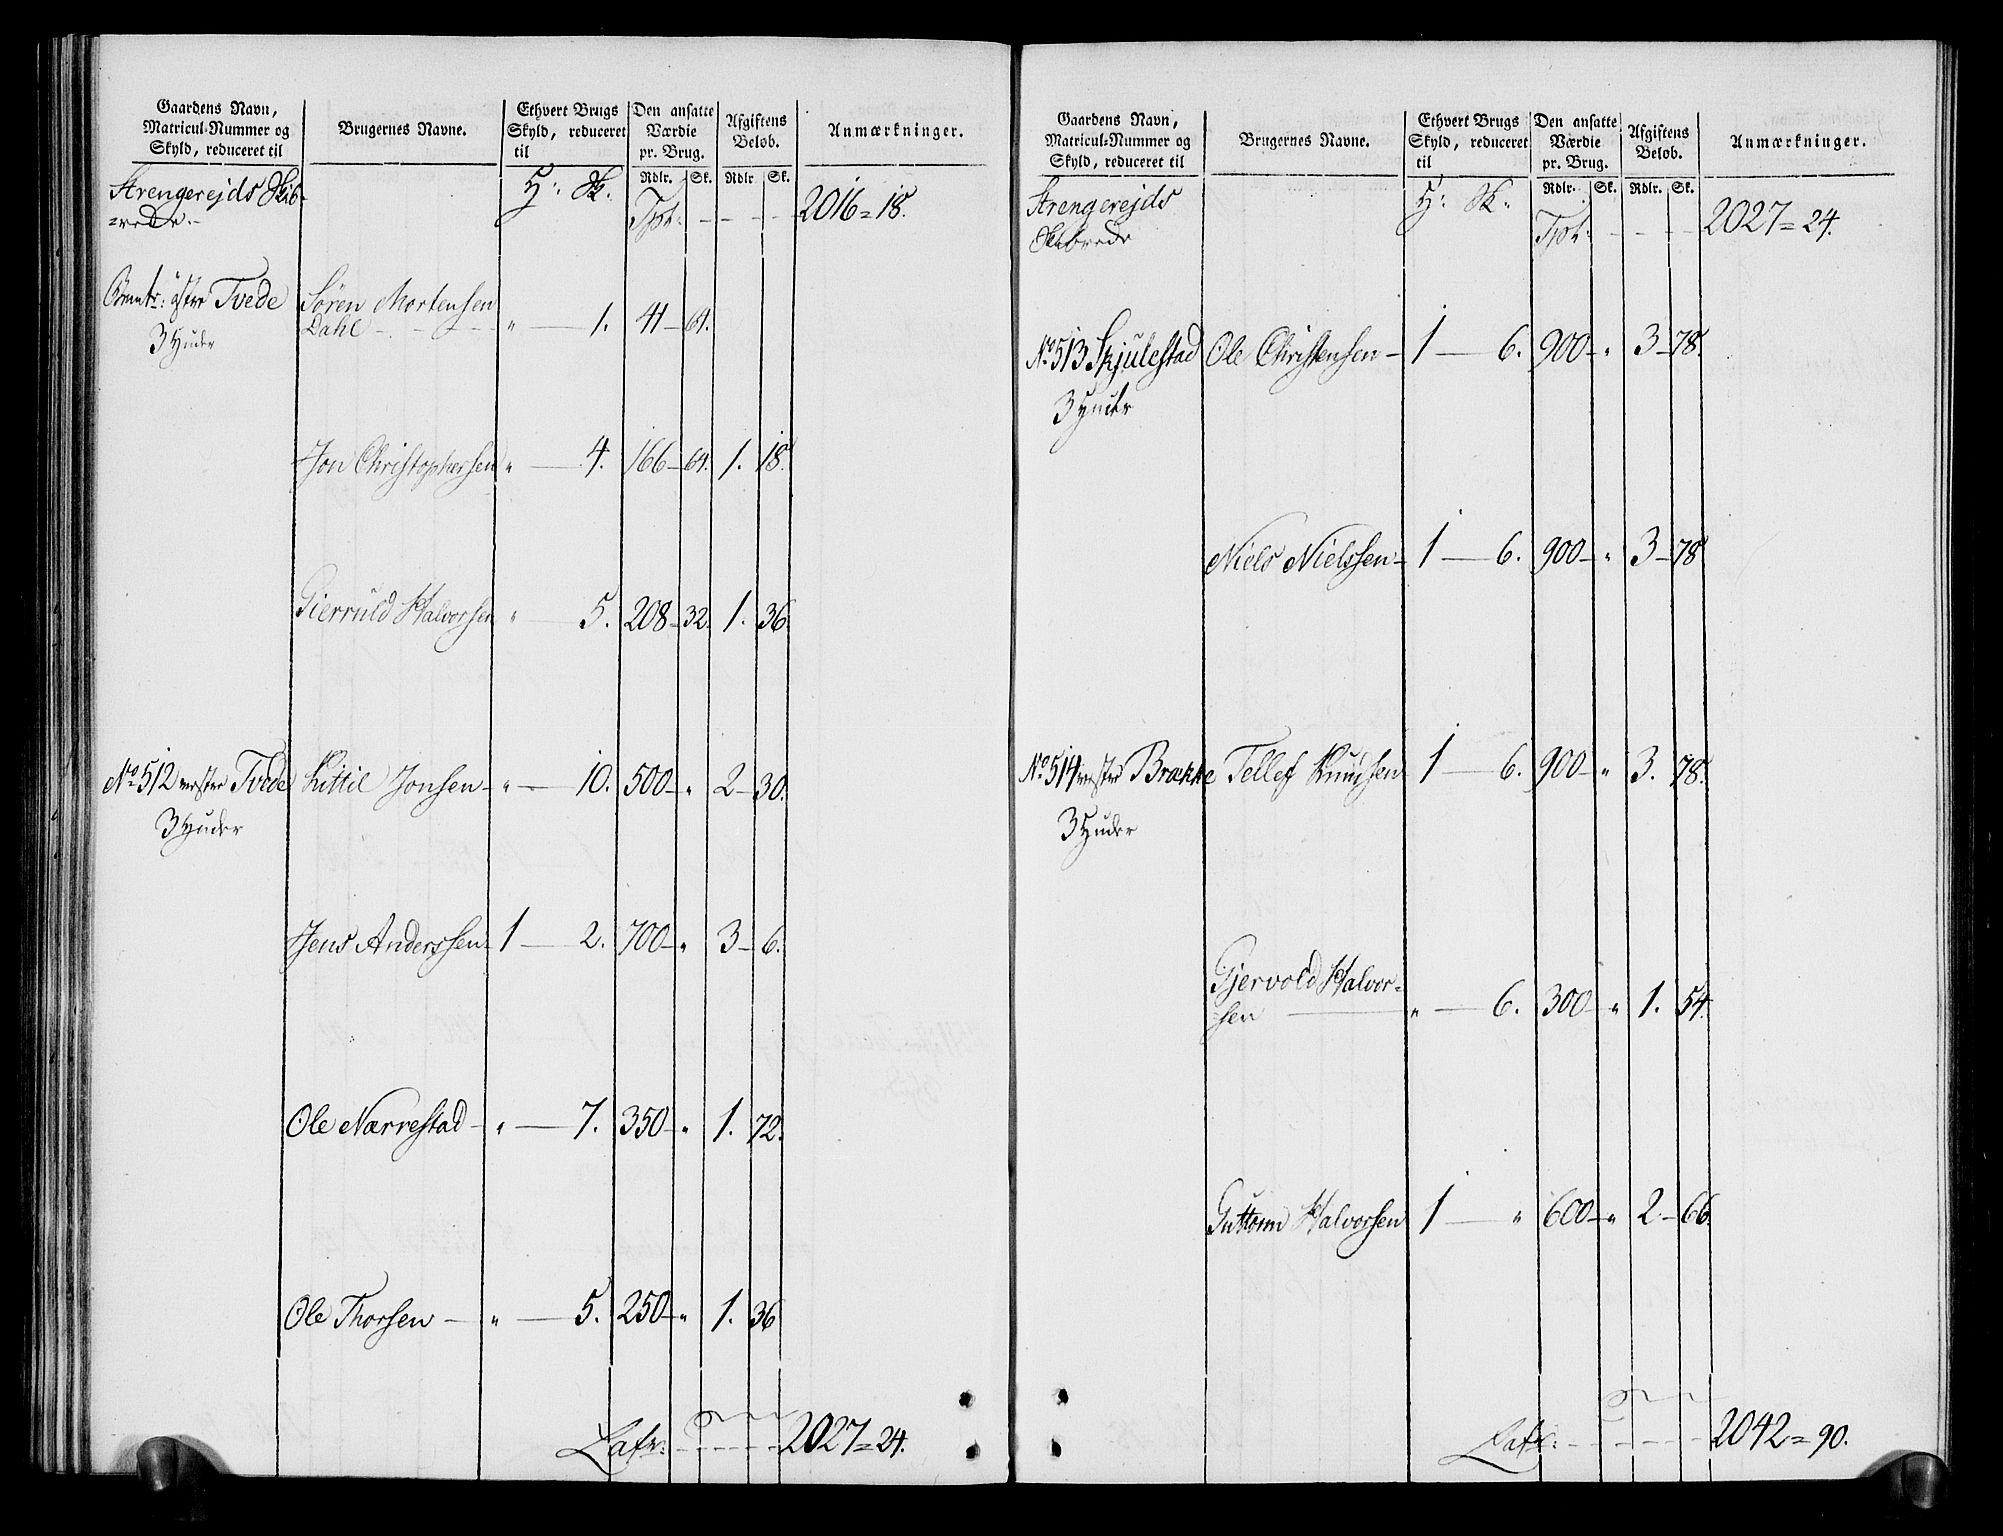 Gaardens Navn, Matricul-Nummer og Skyld, reduceret til
Brugernes Navne.
Ethvert Brugs Skyld, reduceret til
Den ansatte Værdie pr. Brug.
Afgiftens Beløb.
Anmærkninger.
Rdlr. Sk. Rdlr Sk.
Strengerejds Skib-
=rede.-
H: Sk:
Tpt: - - - - 2016=18.
østre Tvede
3 Huder
Søren Mortensen
Dahl - - - " — 1. 41 - 64.
Jon Christophersen " — 4. 166 - 64. 1. 18.
Gierruld Halvorsen " — 5. 208 - 32. 1. 36.
No 512 vestre Tvede Kittil Jonsen - " — 10. 500 - " 2 - 30.
3 Huder
Jens Anderssen - 1 — 2. 700 - " 3 - 6.
Ole Nærrestad - " — 7. 350 - " 1. 72.
Ole Thorsen — " — 5. 250 - " 1. 36
Latr: - - - - - 2027=24.
Gaardens Navn, Matricul-Nummer og Skyld, reduceret til
Brugernes Navne.
Ethvert Brugs Skyld, reduceret til
Den ansatte Værdie pr. Brug.
Afgiftens Beløb.
Anmærkninger.
Rdlr. Sk. Rdlr. Sk.
Strengerejds
Skibrede
H: Sk:
Tpt: - - - - 2027=24.
No 513 Skjulestad Ole Christensen - 1 — 6. 900 - " 3 - 78.
3 Huder
Niels Nielssen - 1 — 6. 900 - " 3 - 78
No 514 vestre Brække Tellef Knudsen 1 — 6. 900 - " 3. 78.
3 Huder
Gjervold Halvor=
sen — " — 6. 300 - " 1. 54.
Guttorm Halvorsen 1 — " 600 - " 2 - 66.
Latr: - - - - - 2042=90.